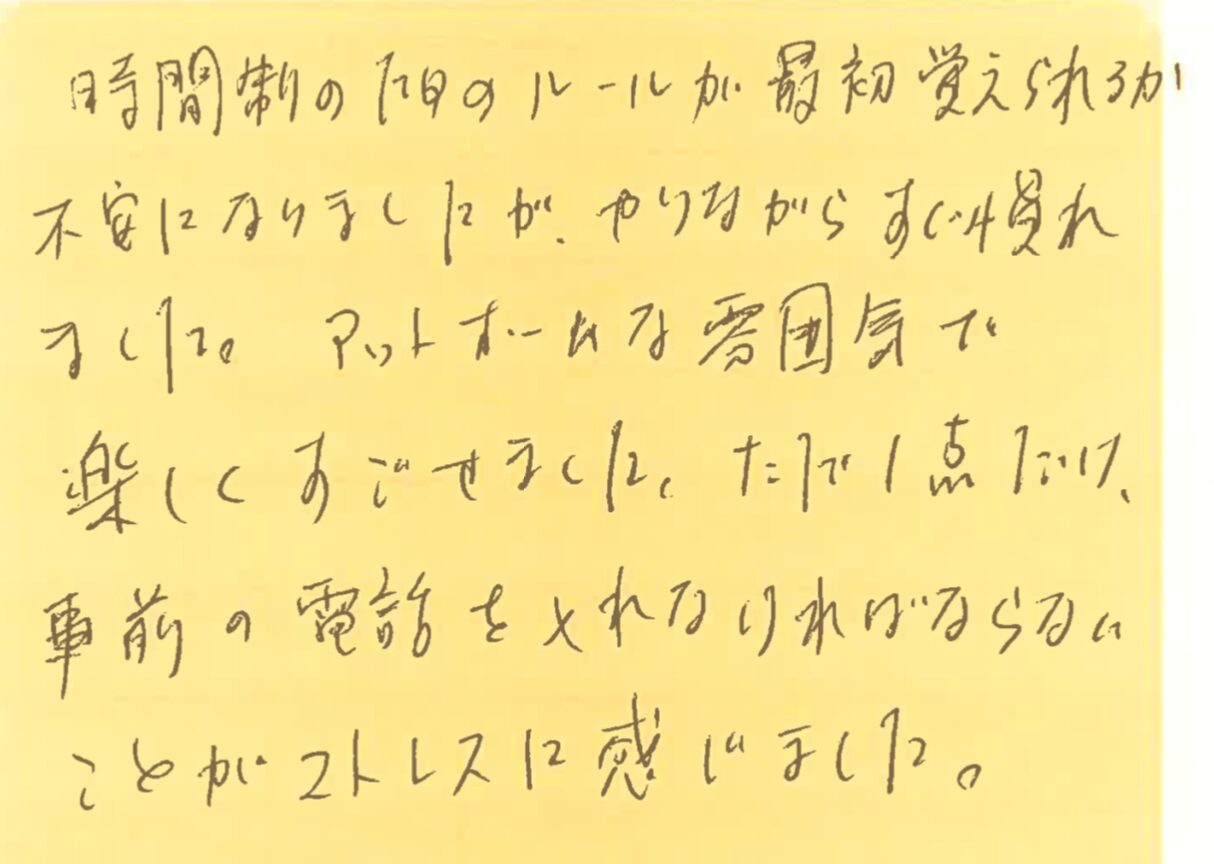 時間制のためのルールが最初覚えられるか
不安になりましたが、やりながらすぐ慣れ
ました。アットホームな雰囲気で
楽しくすごせました。ただ1点だけ、
事前の電話をとれなければならない
ことがストレスに感じました。